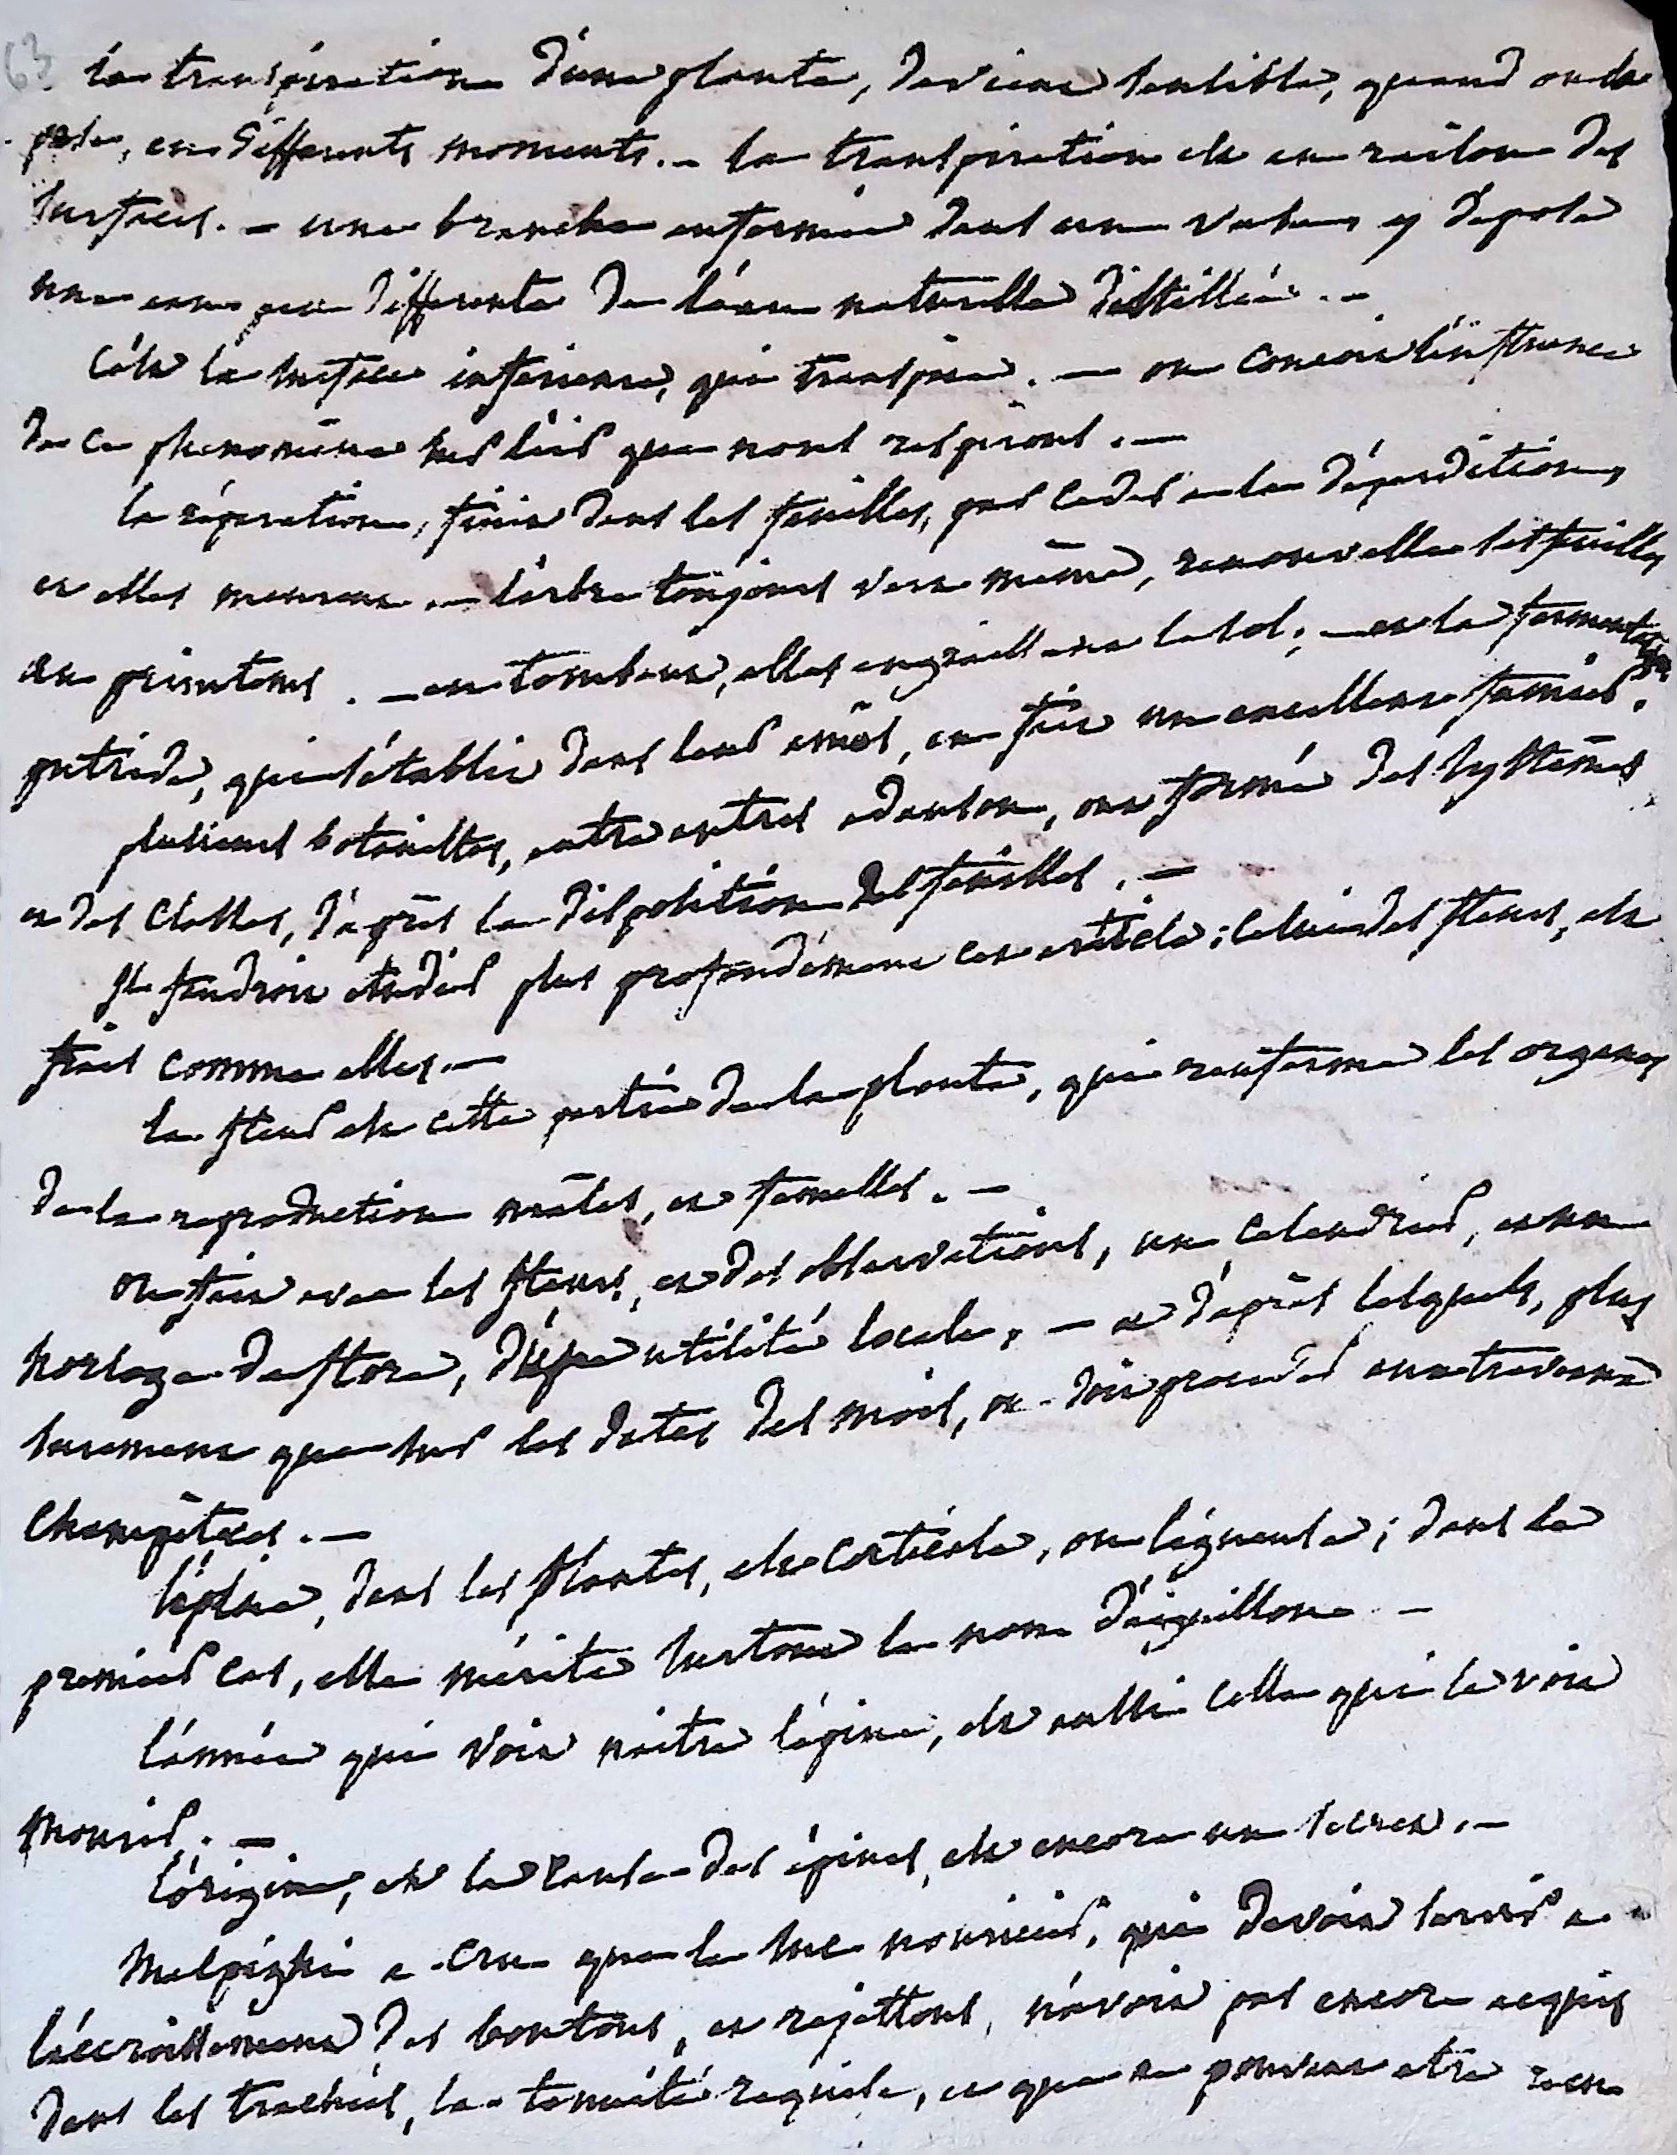 63
la transpiration d'une plante, devient sensible, quand on la
pèse, en differents moments. – la transpiration est en raison des
surfaces. – une branche enfermée dans un vase y depose
une eau peu differente de l'eau naturelle distillée. –
c'est la surface inferieure, qui transpire. – on conçoit l'influence
de ce phenomène sur l'air que nous respirons. –
la réparation, finit dans les feuilles, par ceder a la déperdition,
et elles meurent. – l'arbre toujours vert même, renouvelle ses feuilles
au printems. – en tombant, elles engraissent le sol; – et la fermentation
putride, qui s'établit dans leurs amas, en fait un excellent fumier.
plusieurs botanistes, entre autres adanson, ont formé des systèmes
et des classes, d'après la disposition des feuilles. –
il faudroit etudier plus profondément cet article; celui des fleurs, est
frais comme elles. –
la fleur est cette partie de la plante, qui renferme les organes
de la reproduction mâles, et femelles. –
on fait avec les fleurs, et des observations, un calendrier, et une
horloge de flore, d'une utilité locale, – et d'après lesquels, plus
surement que sur les dates des mois, on doit proceder aux travaux
champêtres. –
l'épine, dans les plantes, est corticale, ou ligneuse; dans le
premier cas, elle mérite surtout le nom d'aiguillon –
l'année qui voit naitre l'épine, est aussi celle qui la voit
mourir. –
l'origine, et la cause des épines, est encore un secret. –
Malpighi a cru que le suc nouricier, qui devoit servir a
l'accroissement des boutons, et rejettons, n'avoit pas encore acquis
dans les trachées, la tenuité requise, et que ne pouvant etre reçu